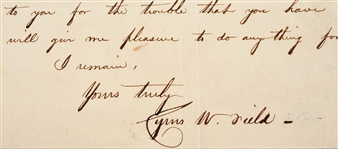 to you for the trouble that you have
will give me pleasure to do any thing for
I remain,
Yours truly
Cyrus W. Field -